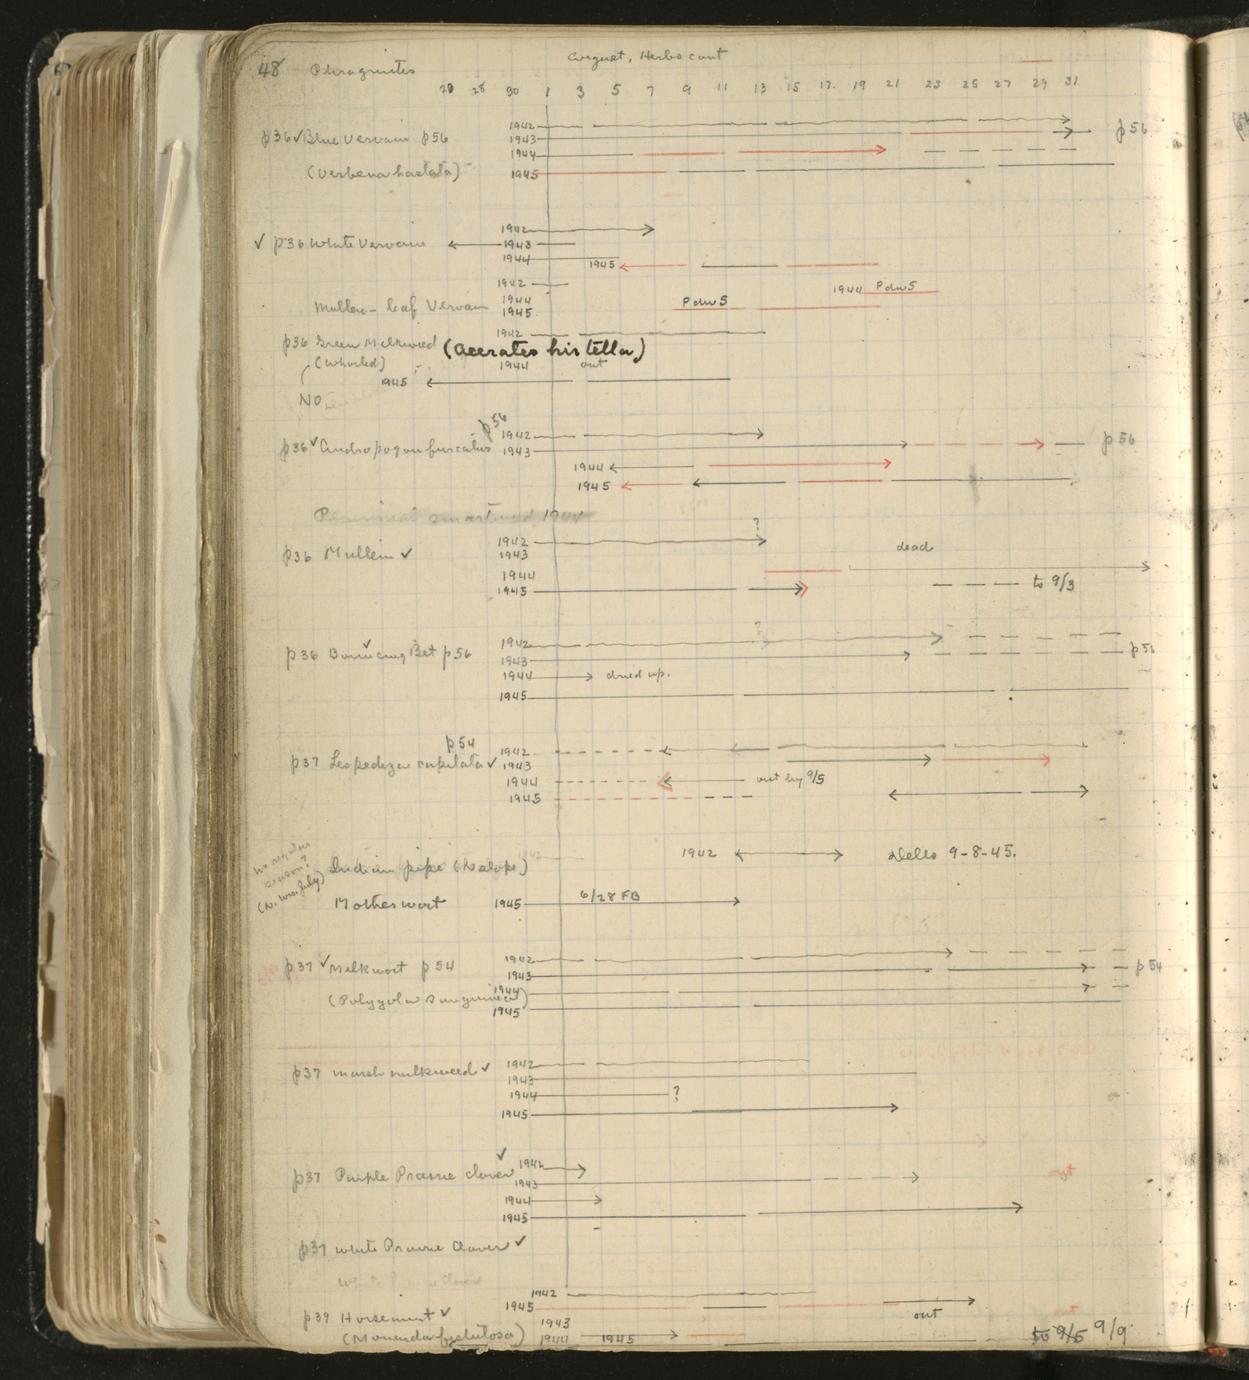 48 Phragmites August, Herbs cont
28 30 1 3 5 7 9 11 13 15 17 19 21 23 25 27 29 31
p36 ✓ Blue Vervain p56 1942 p56
1943
1944
(Verbena hastata) 1945
1942
✓ p36 White Vervain 1943
1944 1945
1942
1944 1944 Pdu S
Mullen-leaf Vervain 1945 Pdu S
1942
p36 Green Milkweed (Acerates hirtella)
(whorled) 1944 out
1945
NO
p56
p36 ✓ Andropogon furcatus 1942 p56
1943
1944
1945
Perennial smartweed 1944
?
p36 Mullein ✓ 1942 dead
1943
1944
1945 to 9/3
?
p36 Bouncing Bet ✓ p56 1942 p56
1943
1944 dried up.
1945
p54
p37 Lespedeza capitata ✓ 1942
1943
1944 out by 9/5
1945
season?
(N. Wis. July)
1942 Dells 9-8-45.
Indian pipe
Motherwort 1945 6/28 FB
p37 ✓ Milkwort p54 1942 p54
1943
(Polygala sanguinea) 1944
1945
p37 marsh milkweed ✓ 1942
1943
1944 ?
1945
p37 Purple Prairie clover ✓ 1942
1943
1944
1945
p37 white Prairie clover ✓
1942
p39 Horsemint ✓ 1945 out
1943
(Monarda fistulosa) 1944 1945 to 9/5 9/9